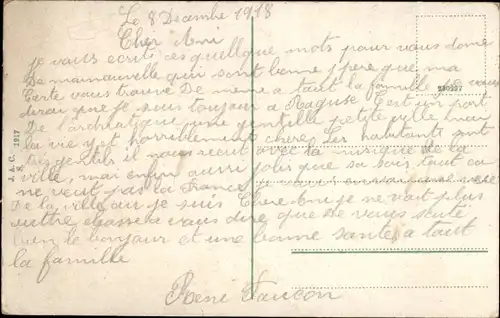 Le 8 Decembre 1918
Cher Ami
je vous ecrit ces quelque mots pour vous done
De mamauvelle qui sont bonne j'pere que ma
Carte vous trouve De meme a tout la famille je vous
dirai que je sous toujour a Raguse C'est un port
De l'adriatique une gentille petite ville mai
la vie est horriblement cheres les habitants sont
tres gentils il nous recut avec la musique de la
ville, mai enfin aussi jolis que sa sois tout ca
ne veut pas la France
De la ville ou je suis Cher ami je ne voit plus
autre chose a vous dire que De vous soute
bien le bonjour et une bonne sante a tout
la famille
René Faucon
J. & C. 1917